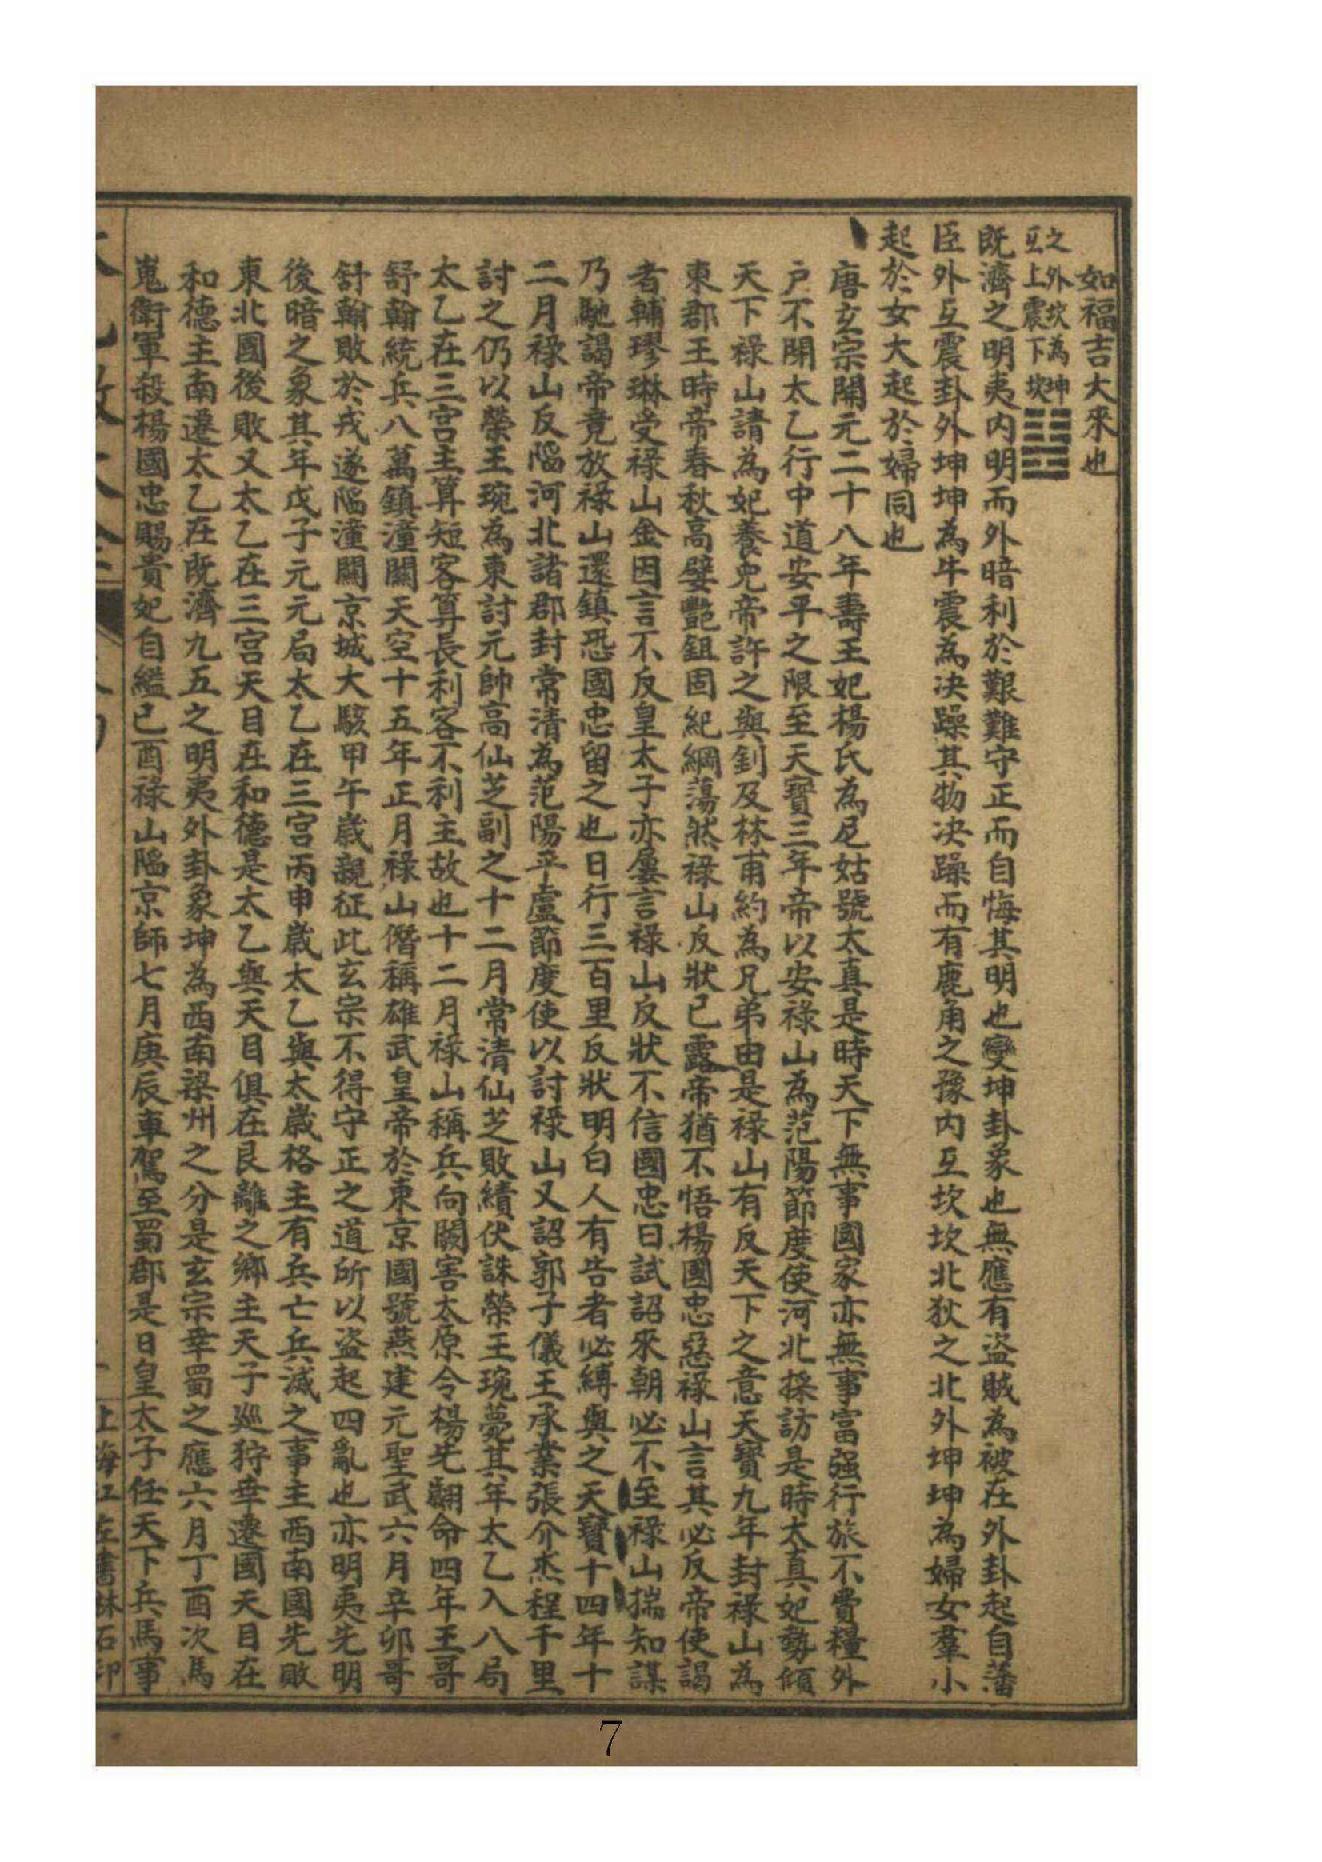 如福吉大來也
之外坎為坤
互上震下坎
既濟之明夷內明而外暗利於艱難守正而自悔其明也變坤卦象也無應有盜賊為被在外卦起自藩
臣外互震卦外坤坤為牛震為决躁其物决躁而有鹿角之豫內互坎坎北狄之北外坤坤為婦女羣小
起於女大起於婦同也
唐玄宗開元二十八年壽王妃楊氏為尼姑號太真是時天下無事國家亦無事富强行旅不費糧外
户不閉太乙行中道安平之限至天寶三年帝以安祿山為范陽節度使河北採訪是時太真妃勢傾
天下祿山請為妃養兒帝許之與釗及林甫約為兄弟由是祿山有反天下之意天寶九年封祿山為
東郡王時帝春秋高嬖艷鉏固紀綱蕩然祿山反狀已露帝猶不悟楊國忠惡祿山言其必反帝使謁
者輔璆琳受祿山金因言不反皇太子亦屢言祿山反狀不信國忠曰試詔來朝必不至祿山揣知謀
乃馳謁帝竟放祿山還鎮恐國忠留之也日行三百里反狀明白人有告者必縛與之天寶十四年十
二月祿山反陷河北諸郡封常清為范陽平盧節度使以討祿山又詔郭子儀王承業張介烝程千里
討之仍以榮王琬為東討元帥高仙芝副之十二月常清仙芝敗績伏誅榮王琬薨其年太乙入八局
太乙在三宫主算短客算長利客不利主故也十二月祿山稱兵向闕害太原令楊光翽命四年王哥
舒翰統兵八萬鎮潼關天空十五年正月祿山僭稱雄武皇帝於東京國號燕建元聖武六月辛卯哥
舒翰敗於戎遂陷潼關京城大駭甲午歲親征此玄宗不得守正之道所以盜起四亂也亦明夷先明
後暗之象其年戊子元元局太乙在三宫丙申歲太乙與太歲格主有兵亡兵滅之事主西南國先敗
東北國後敗又太乙在三宫天目在和德是太乙與天目俱在艮離之鄉主天子巡狩幸遷國天目在
和德主南遷太乙在既濟九五之明夷外卦象坤為西南梁州之分是玄宗幸蜀之應六月丁酉次馬
嵬衛軍殺楊國忠賜貴妃自縊已酉祿山陷京師七月庚辰車駕至蜀郡是日皇太子任天下兵馬事
上海江左書林石印
7